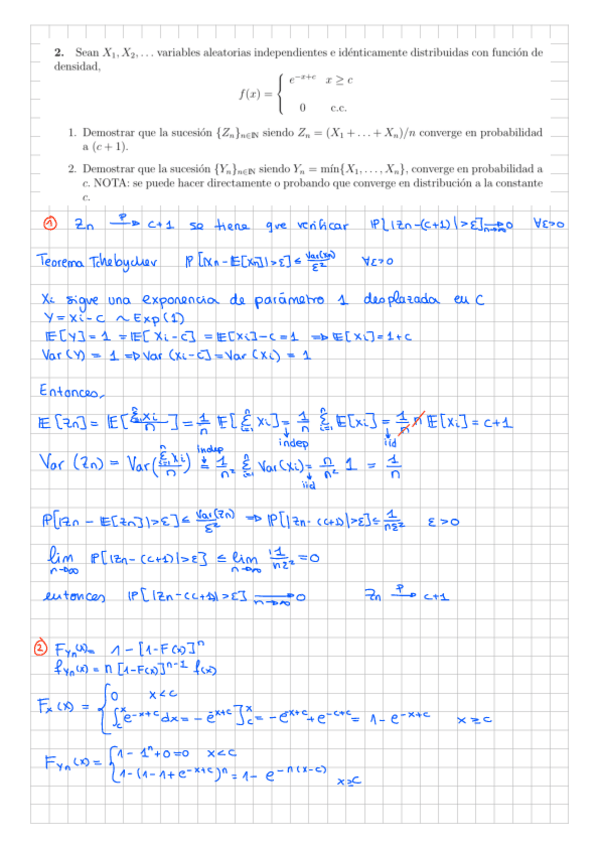 2. Sean X₁, X₂, . . . variables aleatorias independientes e idénticamente distribuidas con función de
densidad,
f(x) = { e^{−x+c} x ≥ c
0 c.c.
1. Demostrar que la sucesión {Zₙ}ₙ∈ℕ siendo Zₙ = (X₁ + . . . + Xₙ)/n converge en probabilidad
a (c + 1).
2. Demostrar que la sucesión {Yₙ}ₙ∈ℕ siendo Yₙ = mín{X₁, . . . , Xₙ}, converge en probabilidad a
c. NOTA: se puede hacer directamente o probando que converge en distribución a la constante
c.
① Zn —P→ c+1 se tiene que verificar IP[|Zn-(c+1)|>ε] —n→∞→ 0 ∀ε>0
Teorema Tchebychev IP[|Xn-IE[Xn]|>ε] ≤ Var(Xn)/ε² ∀ε>0
Xi sigue una exponencia de parámetro 1 desplazada en C
Y = Xi - c ~ Exp(1)
IE[Y] = 1 = IE[Xi-c] = IE[Xi]-c = 1 ⇒ IE[Xi] = 1+c
Var(Y) = 1 ⇒ Var(Xi-c) = Var(Xi) = 1
Entonces,
IE[Zn] = IE[Σᵢ₌₁ⁿ Xi / n] = 1/n IE[Σᵢ₌₁ⁿ Xi] = 1/n Σᵢ₌₁ⁿ IE[Xi] = 1/n n IE[Xi] = c+1
indep iid
indep
Var(Zn) = Var(Σᵢ₌₁ⁿ Xi / n) = 1/n² Σᵢ₌₁ⁿ Var(Xi) = n/n² 1 = 1/n
iid
IP[|Zn - IE[Zn]|>ε] ≤ Var(Zn)/ε² ⇒ IP[|Zn-(c+1)|>ε] ≤ 1/nε² ε>0
lim n→∞ IP[|Zn-(c+1)|>ε] ≤ lim n→∞ 1/nε² = 0
entonces IP[|Zn-(c+1)|>ε] —n→∞→ 0 Zn —P→ c+1
② F_Yn(x) = 1-[1-F(x)]ⁿ
f_Yn(x) = n[1-F(x)]ⁿ⁻¹ f(x)
Fx(x) = { 0 x<c
∫_c^x e^{-x+c} dx = -e^{-x+c}]_c^x = -e^{-x+c} + e^{-c+c} = 1-e^{-x+c} x≥c
F_Yn(x) = { 1-1ⁿ+0=0 x<c
1-(1-1+e^{-x+c})ⁿ = 1-e^{-n(x-c)} x≥c